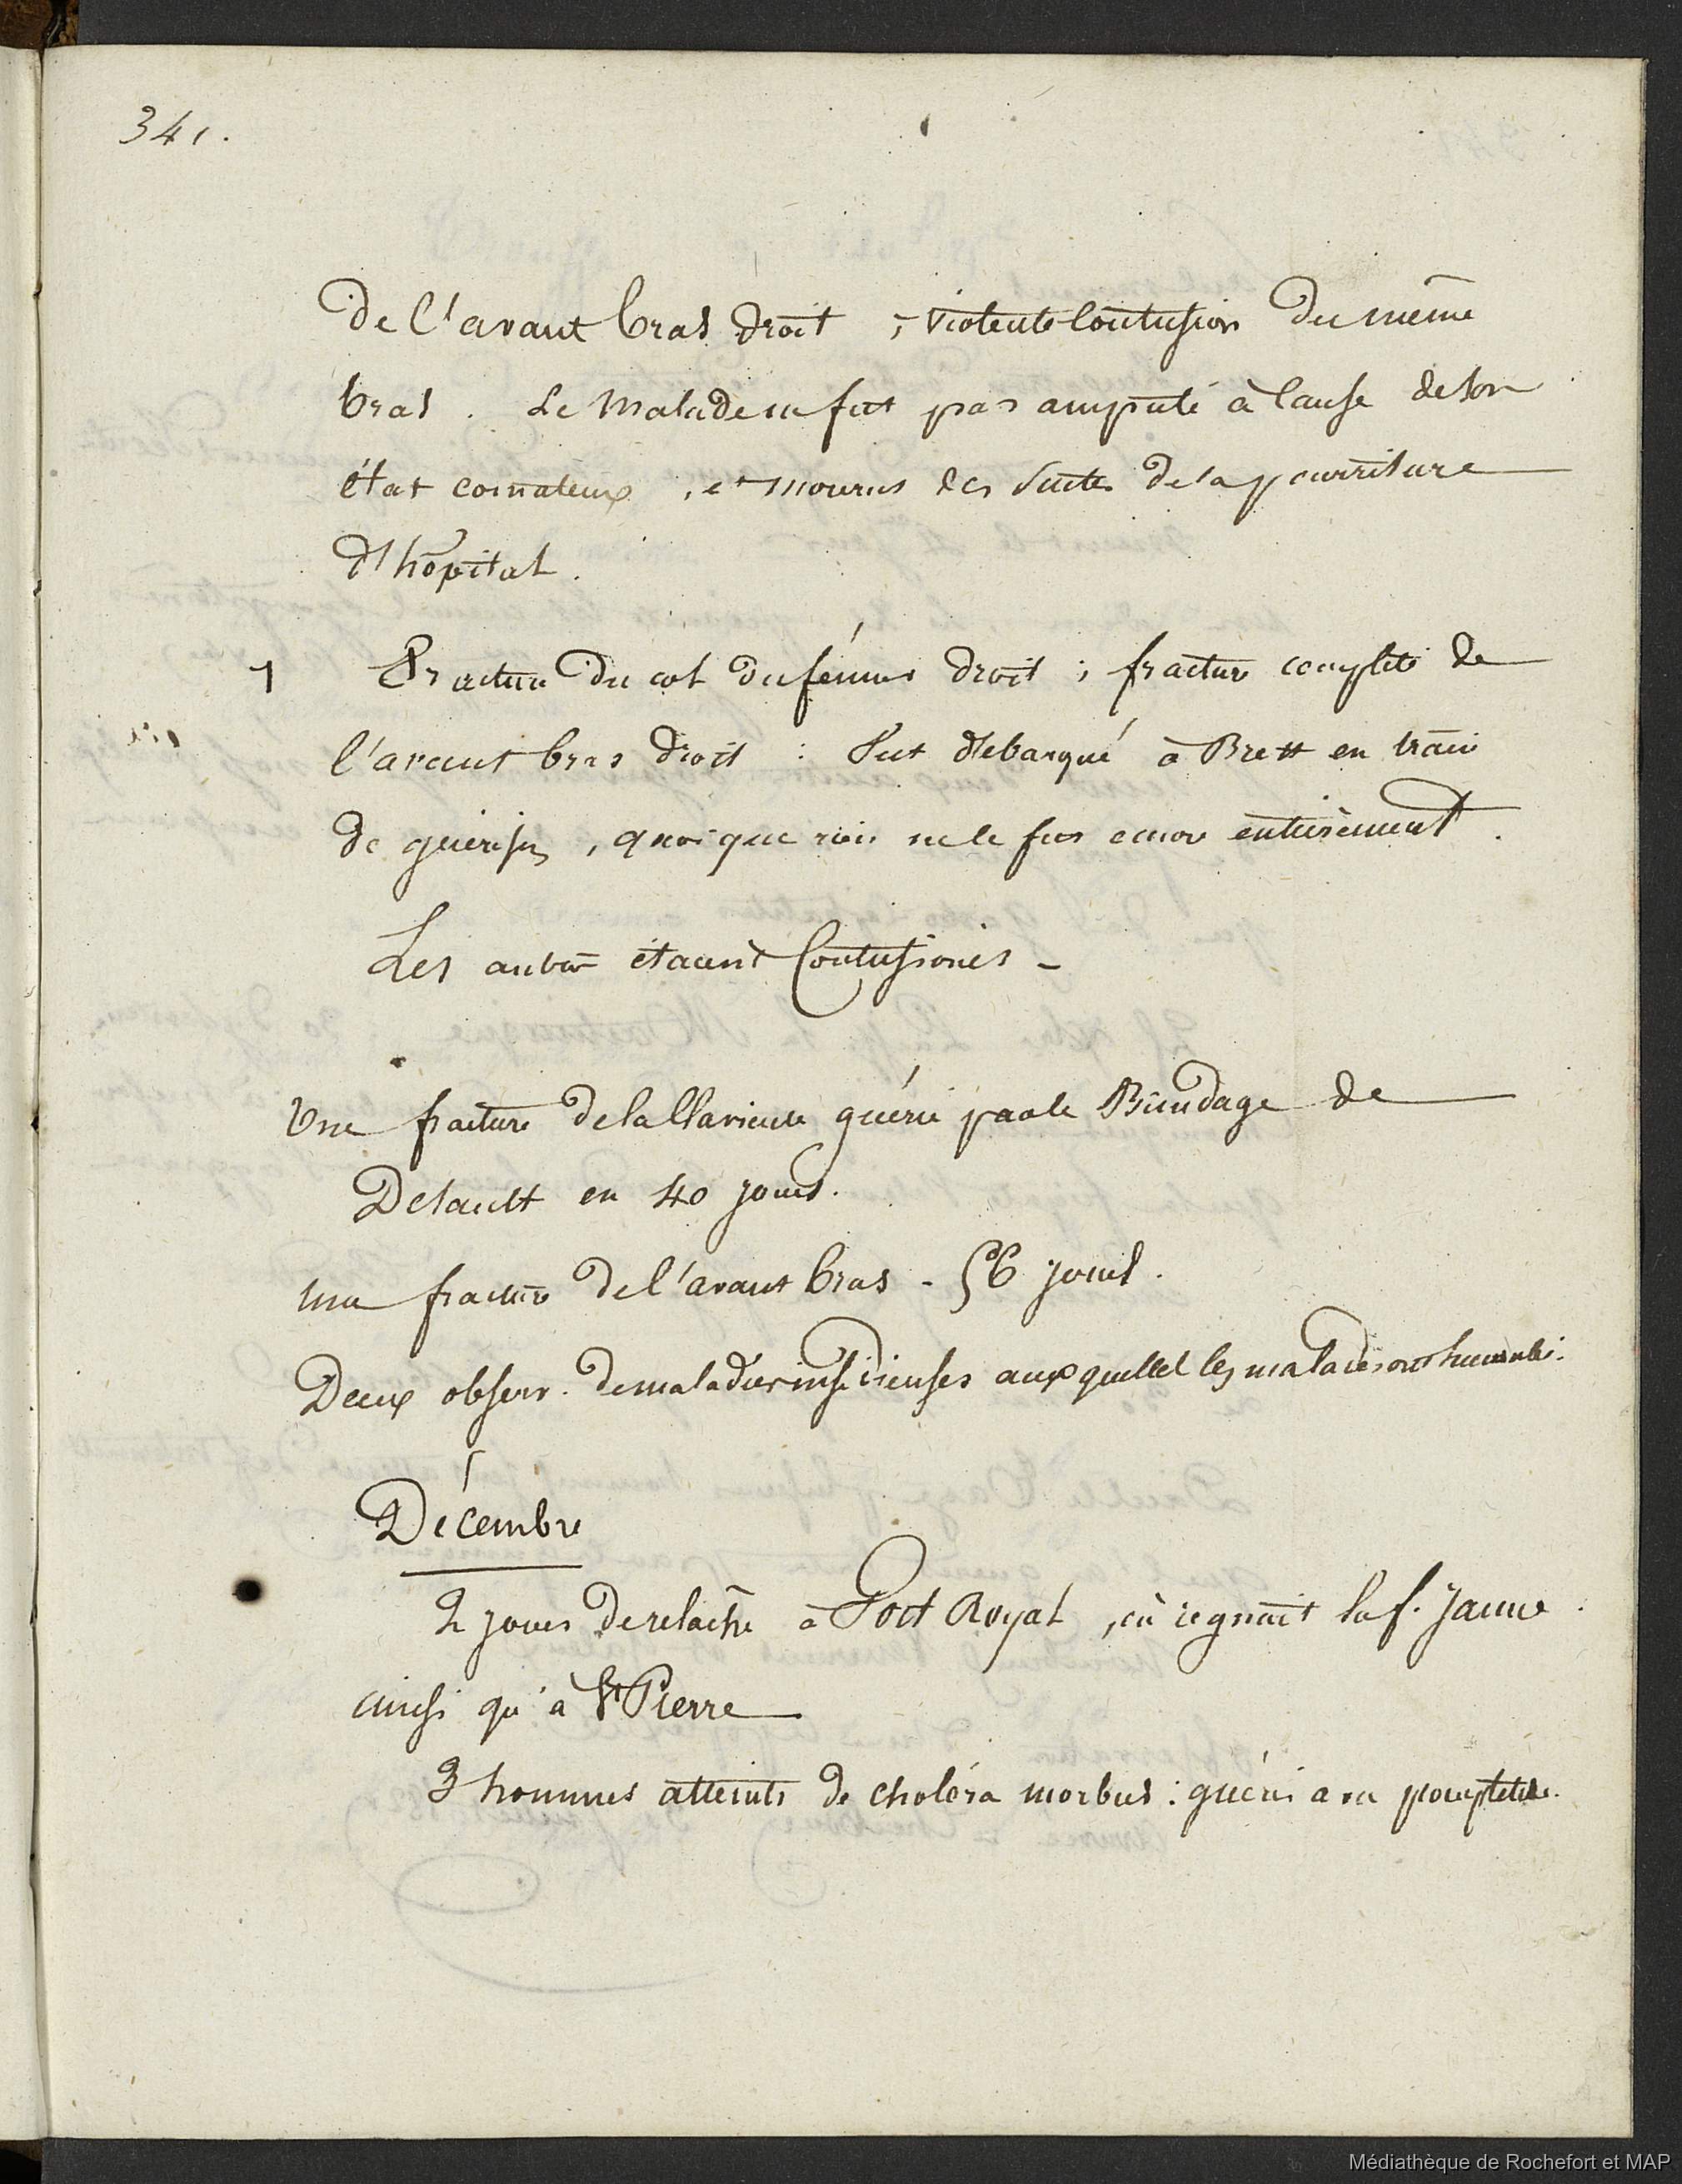 341.
De l'avant bras droit ; violente contusion du même
bras . Le malade ne fut pas amputé à cause de son
état comateux , et mourut des suites de la pourriture
d'hôpital .
1 Fracture du col du fémur droit ; fracture complète de
l'avant bras droit : fut débarqué à Brest en train
de guérison , quoique rien ne le fut encore entièrement .
Les autres étaient contusionés -
Une fracture de la clavicule guérie par le Bandage de
Desault en 40 jours .
une fracture de l'avant bras - 56 jours .
Deux observ. de maladies insidieuses auxquelles les malades ont succombé .
Décembre
2 jours de relâche à Port Royal , où régnait la f. jaune .
ainsi qu'à St Pierre
3 hommes atteints de choléra morbus : guéris
Médiathèque de Rochefort et MAP